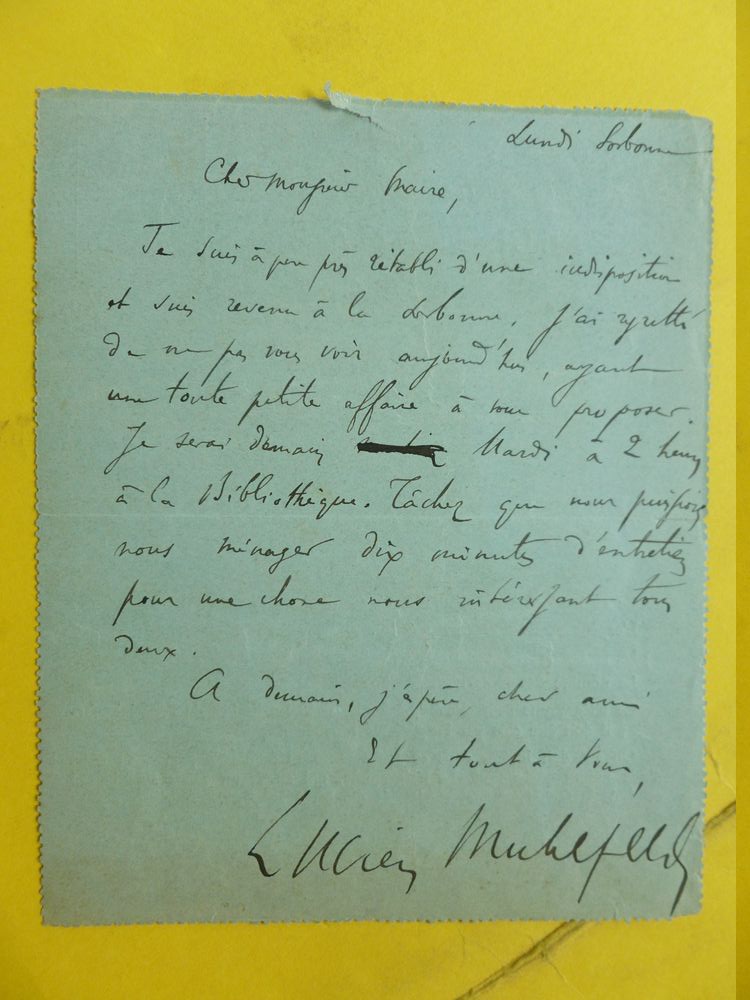 Lundi Sorbonne
Cher Monsieur Maire,
Je suis à peu près rétabli d'une indisposition
et suis revenu à la Sorbonne. J'ai regretté
de ne pas vous voir aujourd'hui, ayant
une toute petite affaire à vous proposer.
Je serai demain Mardi à 2 heures
à la Bibliothèque. Tâchez que nous puissions
nous ménager dix minutes d'entretien
pour une chose nous intéressant tous
deux.
A demain, j'espère, cher ami
Et tout à vous,
Lucien Muhlfeld